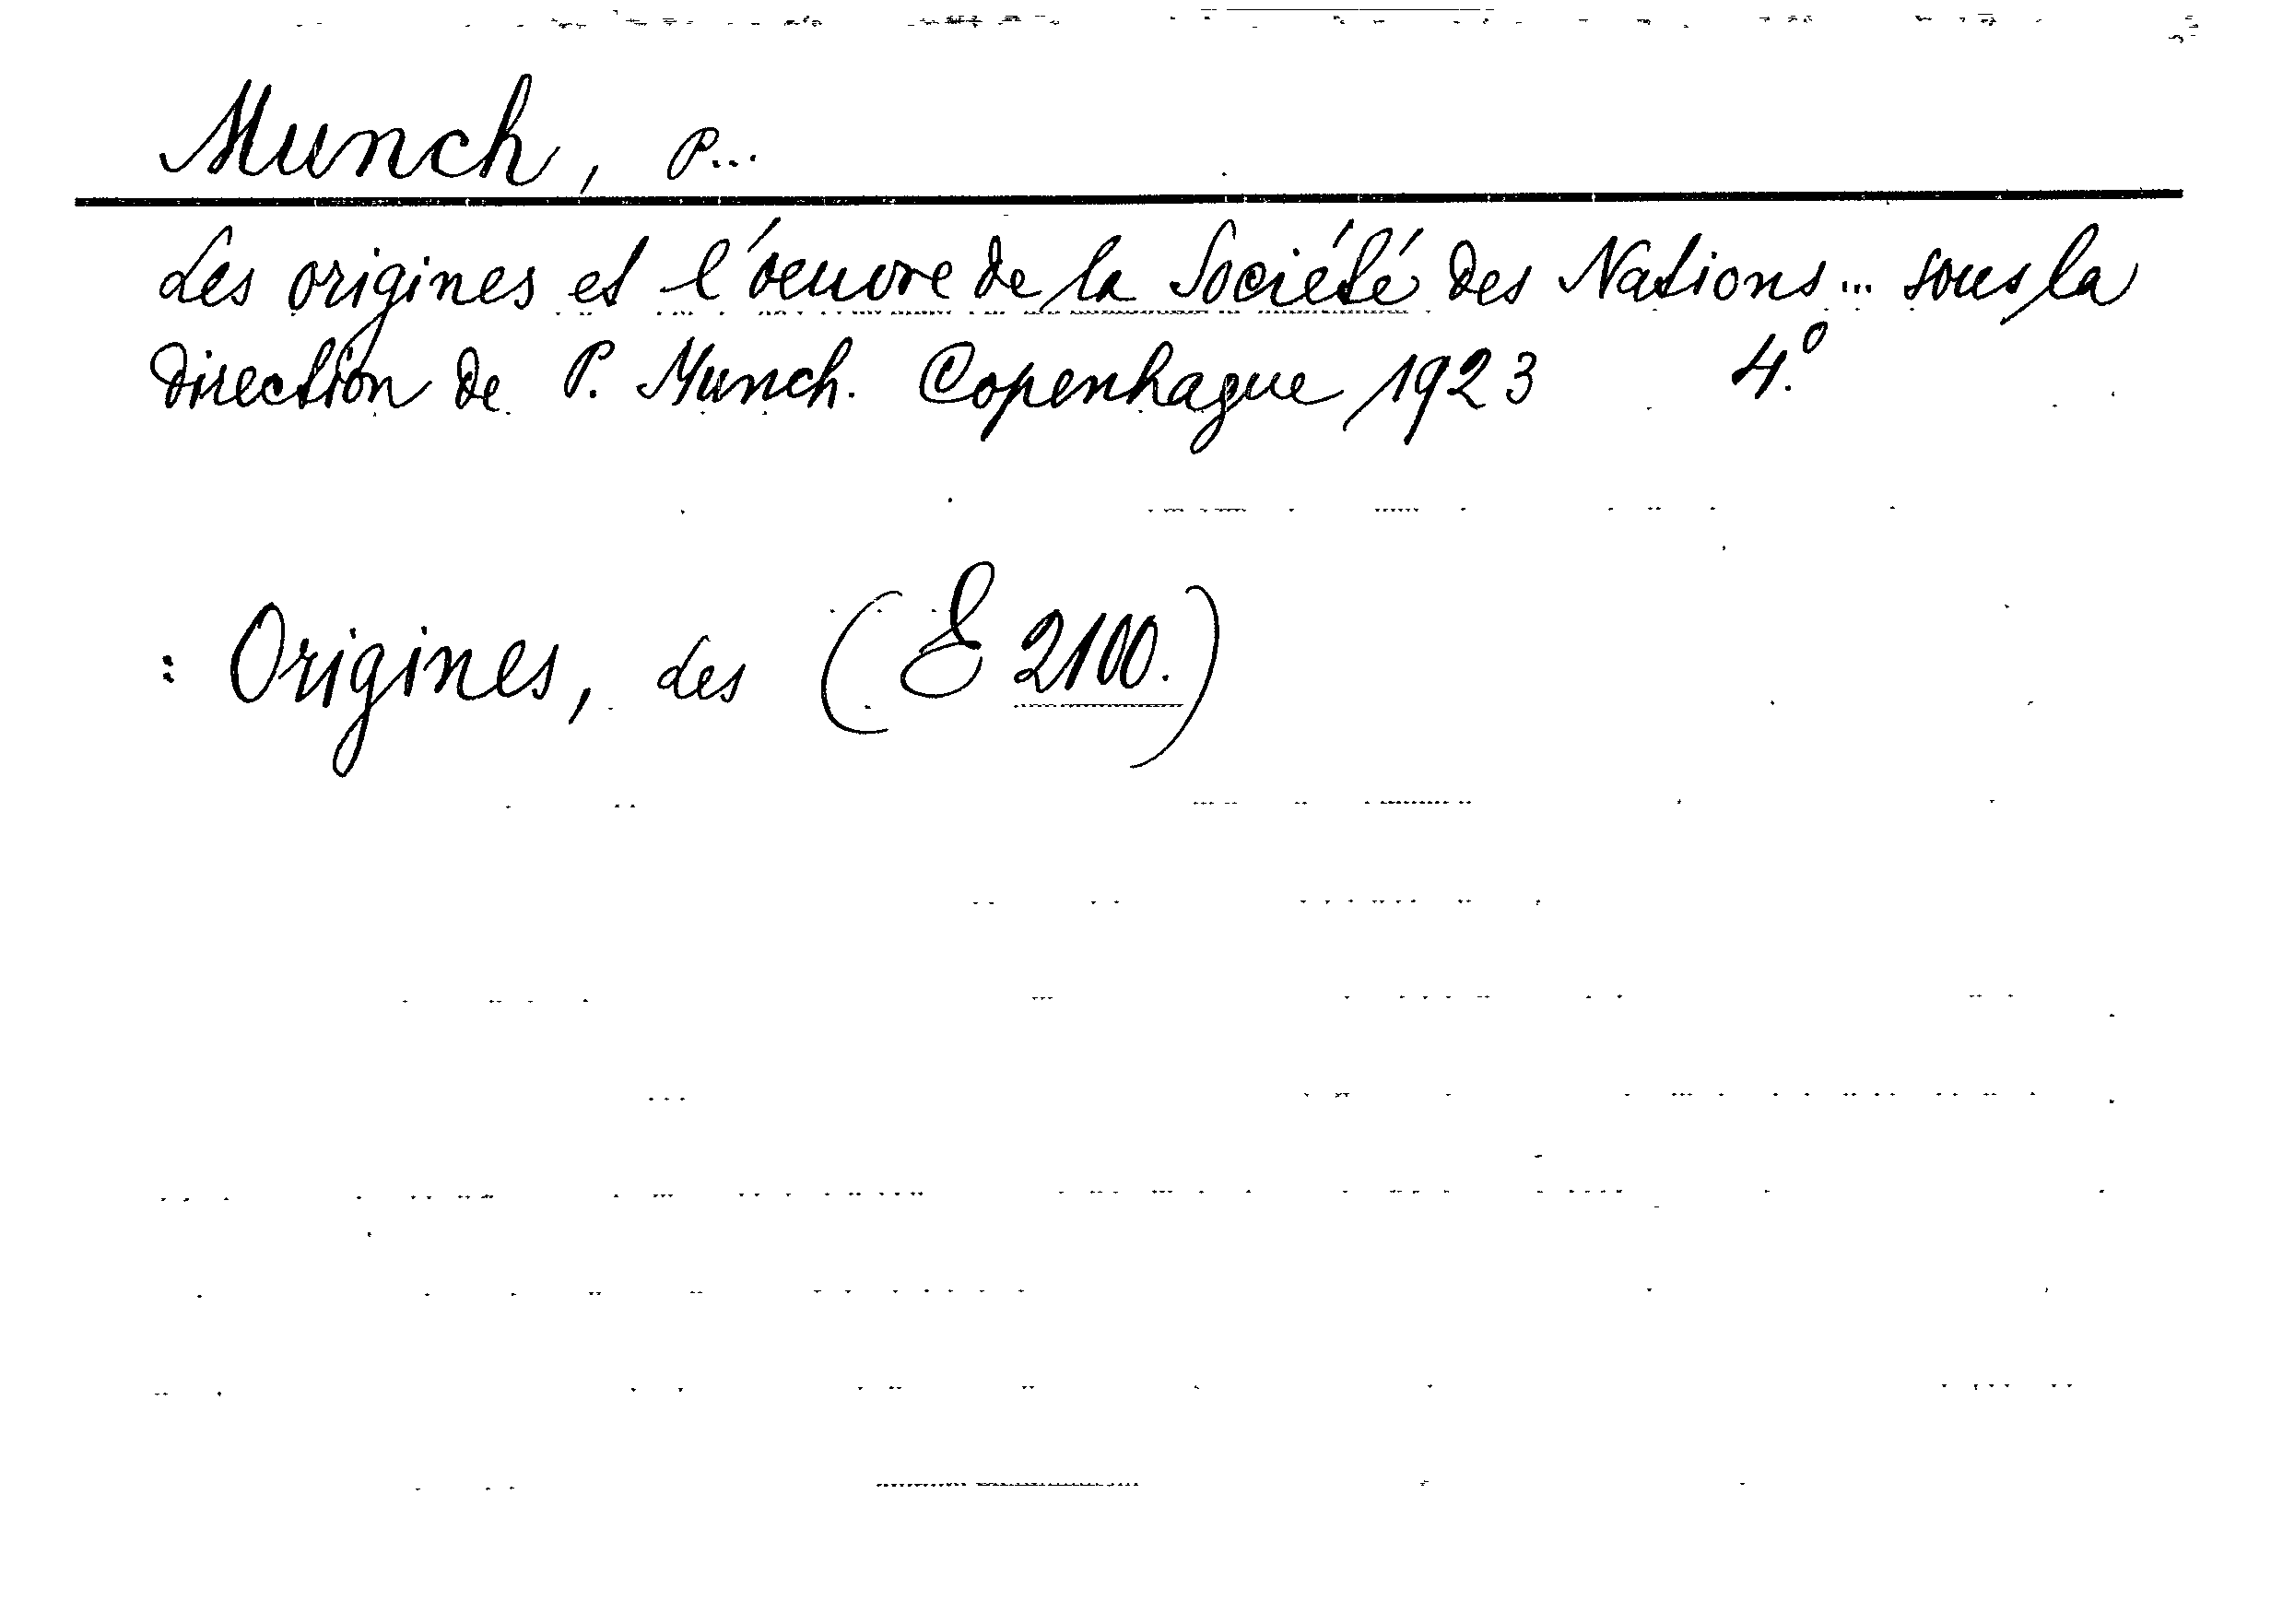 Munch, P...
Les origines et l'oeuvre de la Société des Nations... sous la
direction de P. Munch. Copenhague 1923 4.º
: Origines, Les (E 2100.)